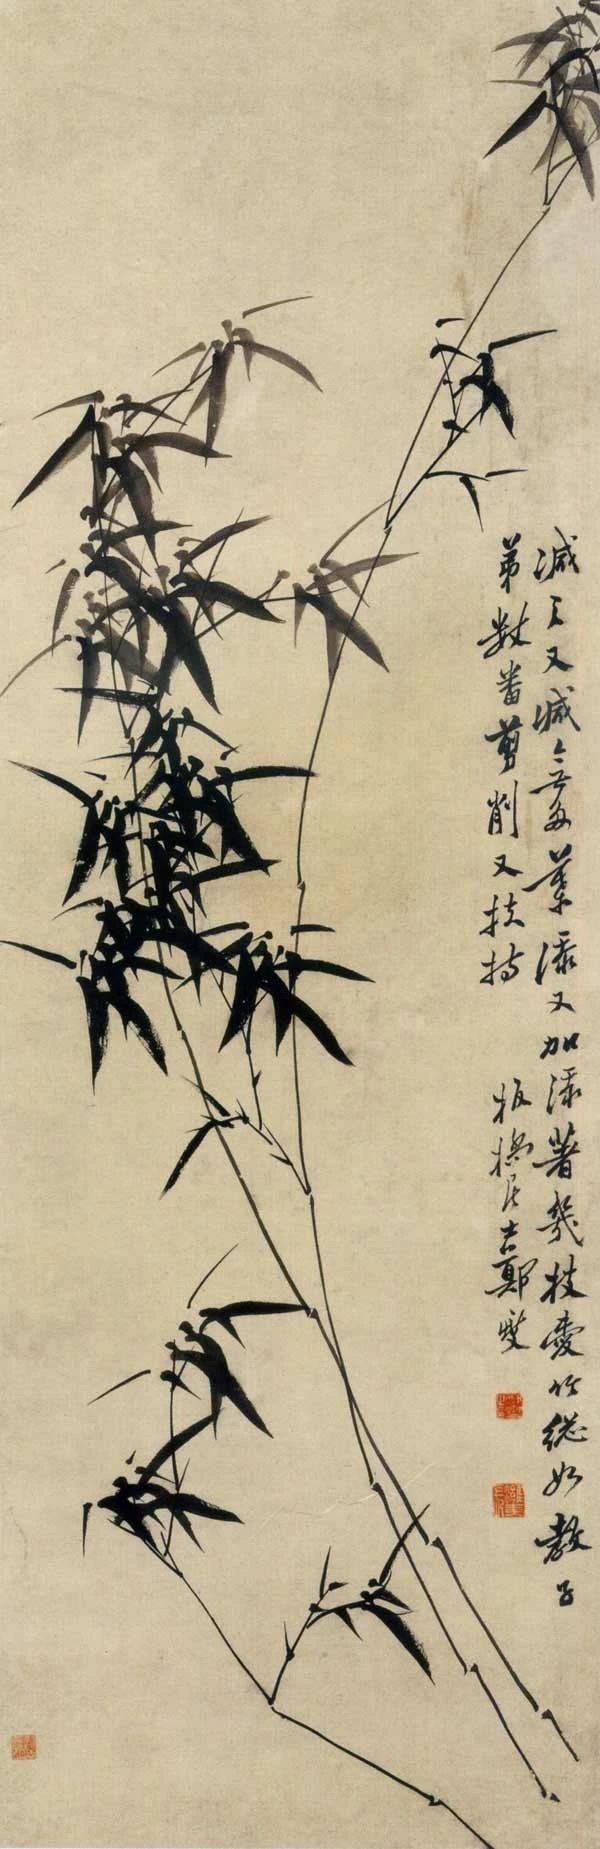 減之又減無多葉添又加添著幾枝愛竹総如教子
弟數番剪削又扶持
板橋居士鄭燮